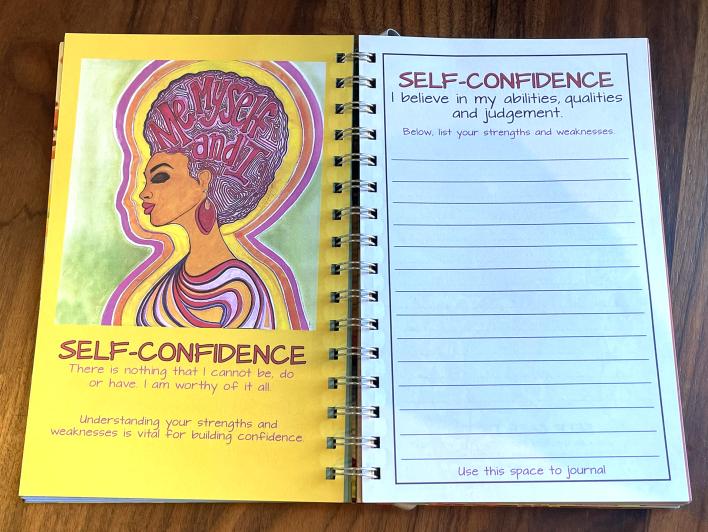 Me, Myself
and I
SELF-CONFIDENCE
There is nothing that I cannot be, do
or have. I am worthy of it all.
Understanding your strengths and
weaknesses is vital for building confidence.
SELF-CONFIDENCE
I believe in my abilities, qualities
and judgement.
Below, list your strengths and weaknesses.
Use this space to journal